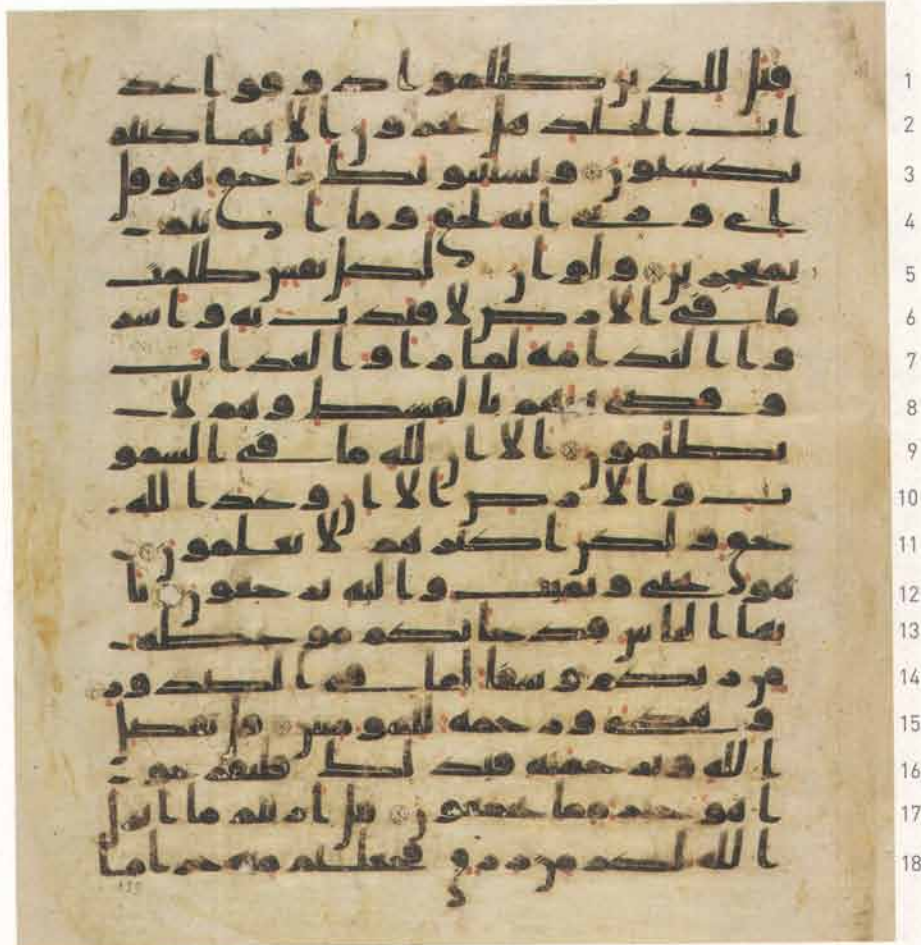 1 قيل للذين ظلموا ذوقوا عذ
2 اب الخلد هل تجزون الا بما كنتم
3 تكسبون ويستنبونك احق هو قل
4 اي وربي انه لحق وما انتم
5 بمعجزين ولو ان لكل نفس ظلمت
6 ما في الارض لافتدت به واسر
7 وا الندامة لما راوا العذاب
8 وقضي بينهم بالقسط وهم لا
9 يظلمون الا ان لله ما في السمو
10 ت والارض الا ان وعد الله
11 حق ولكن اكثرهم لا يعلمون
12 هو يحي ويميت واليه ترجعون يا
13 يها الناس قد جاتكم موعظة
14 من ربكم وشفا لما في الصدور
15 وهدى ورحمة للمومنين قل بفضل
16 الله وبرحمته فبذلك فليفرحو
17 ا هو خير مما يجمعون قل اريتم ما انزل
18 الله لكم من رزق فجعلتم منه حراما